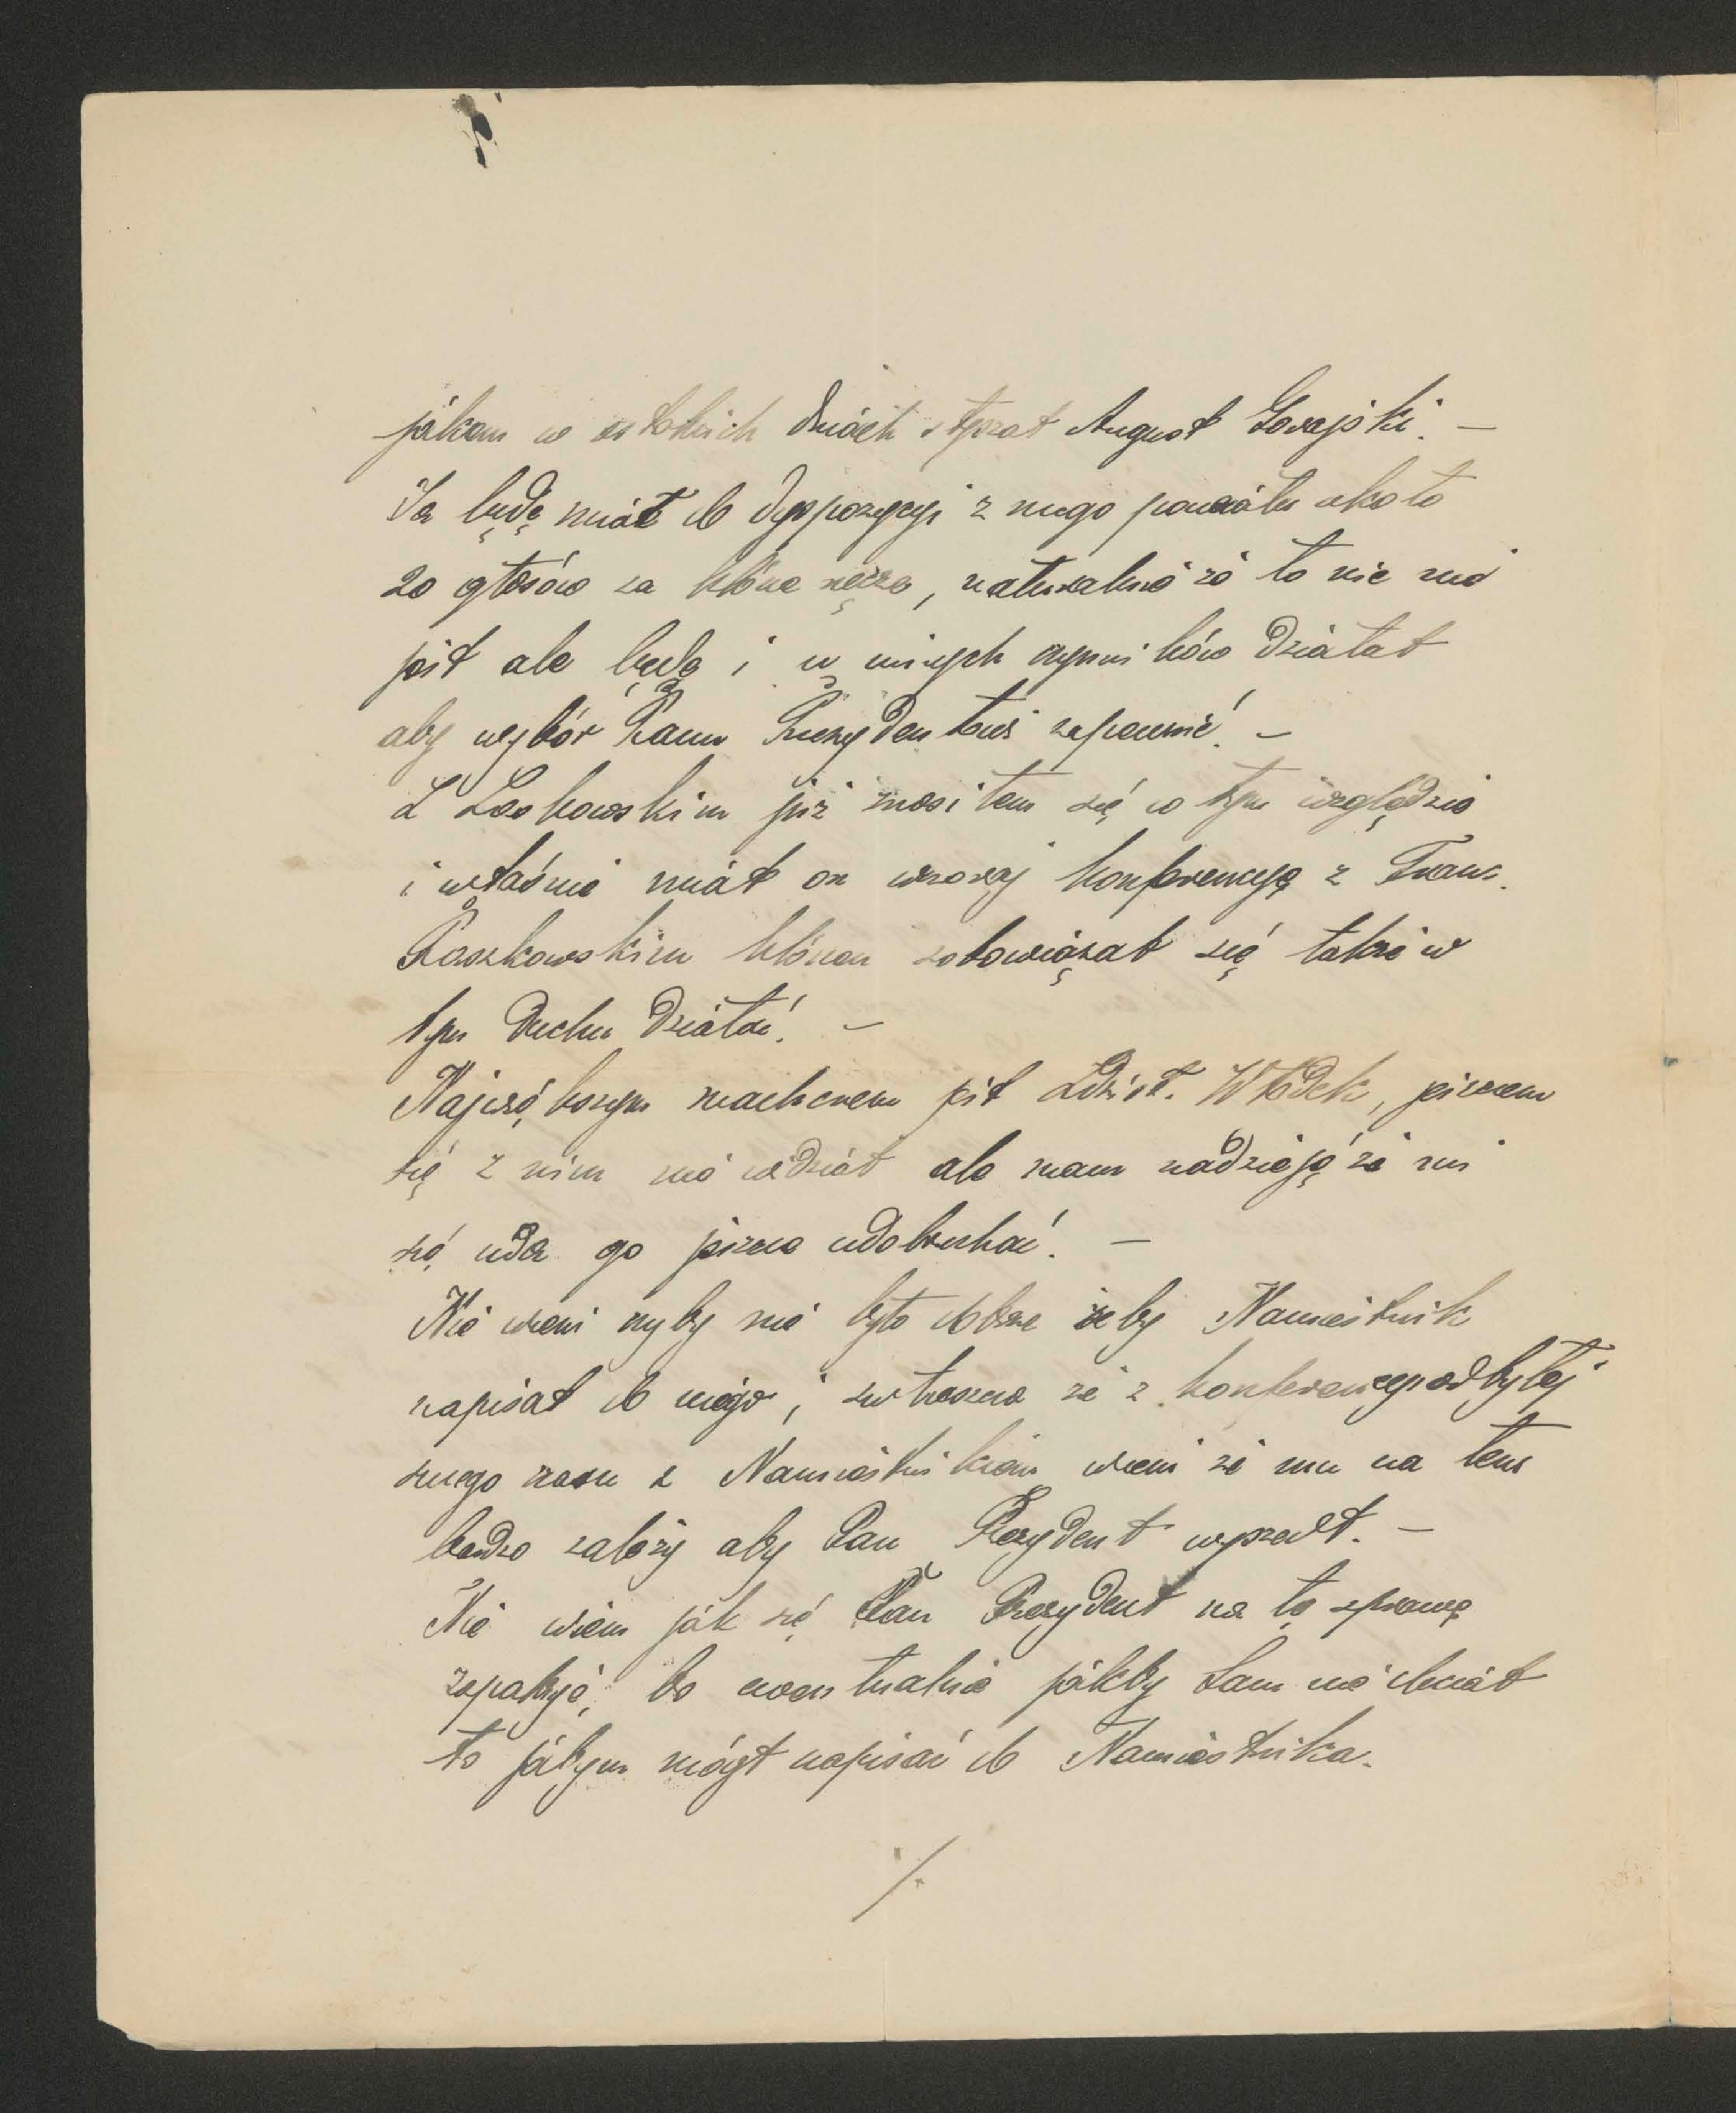 jakem w ostatnich dniach słyszał August Gorajski. —
Ja będę miał do dyspozycyi z mego powiatu około
20 głosów za które ręczę, naturalnie że to nie
jest ale będę i u innych czynników działał
aby wybór Pana Prezydenta zapewnić! —
Z Laskowskim już znosiłem się w tym względzie
i właśnie miał on wczoraj konferencyę z Franc.
Paszkowskim który zobowiązał się także w
tym duchu działać! —
Najgrubszym macherem jest Zdzisł. Włodek, jeszczem
się z nim nie widział ale mam nadzieję że mi
się uda go jeszcze udobruchać! —
Nie wiem czyby nie było dobrze żeby Namiestnik
napisał do niego, zwłaszcza że z konferencyi odbytej
swego czasu z Namiestnikiem wiem że mu na tem
bardzo zależy aby Pan Prezydent wyszedł. —
Nie wiem jak się Pan Prezydent na tę sprawę
zapatruje, bo ewentualnie jakby Sam nie chciał
to jabym mógł napisać do Namiestnika.
./.